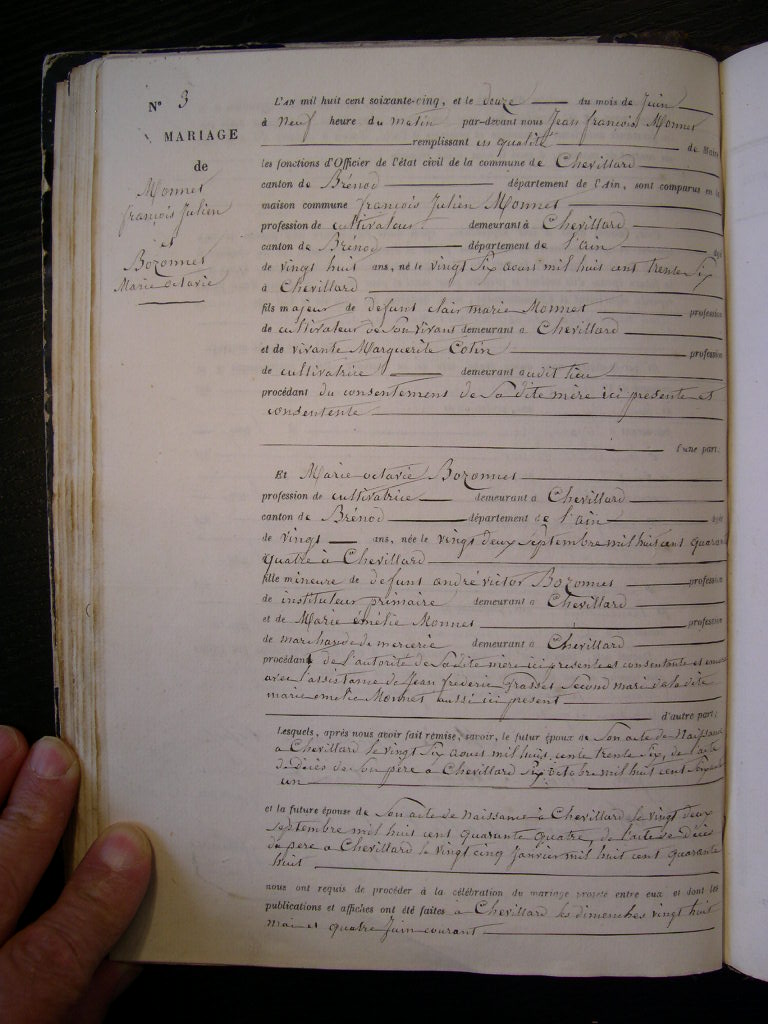 N° 3
MARIAGE
de
Monnet
françois Julien
et
Bozonnet
Marie octavie
L'AN mil huit cent soixante-cinq, et le douze du mois de Juin
à Neuf heure du matin par-devant nous Jean françois Monnet
remplissant en qualité de Maire
les fonctions d'Officier de l'état civil de la commune de Chevillard
canton de Brénod département de l'Ain, sont comparus en la
maison commune françois Julien Monnet
profession de cultivateur demeurant à Chevillard
canton de Brénod département de l'ain âgé
de vingt huit ans, né le vingt Six aout mil huit cent trente Six
à Chevillard
fils majeur de defunt clair marie Monnet profession
de cultivateur de son vivant demeurant à Chevillard
et de vivante Marguerite Cotin profession
de cultivatrice demeurant audit lieu
procédant du consentement de Sa dite mère ici presente et
consentente
d'une part;
Et Marie octavie Bozonnet
profession de cultivatrice demeurant à Chevillard
canton de Brénod département de l'ain âgée
de vingt ans, née le vingt deux septembre mil huit cent quarante
quatre à Chevillard
fille mineure de defunt andré victor Bozonnet profession
de instituteur primaire demeurant à Chevillard
et de Marie émélie Monnet profession
de marchande de mercerie demeurant à Chevillard
procédant de l'autorité de Sa dite mère ici presente et consentante et encore
avec l'assistance de Jean frederic Grasset Second mari de la dite
marie emelie Monnet aussi ici present
d'autre part;
Lesquels, après nous avoir fait remise, savoir, le futur époux de Son acte de Naissance
a Chevillard le vingt Six aout mil huit cents trente Six, de l'acte
de décès de Son père a Chevillard Six octobre mil huit cent Soixante
un
et la future épouse de Son acte de naissance à Chevillard le vingt deux
septembre mil huit cent quarante quatre, de l'acte de Décès
de père a Chevillard le vingt cinq Janvier mil huit cent quarante
huit
nous ont requis de procéder à la célébration du mariage projeté entre eux et dont les
publications et affiches ont été faites à Chevillard les dimenches vingt huit
mai et quatre Juin courant